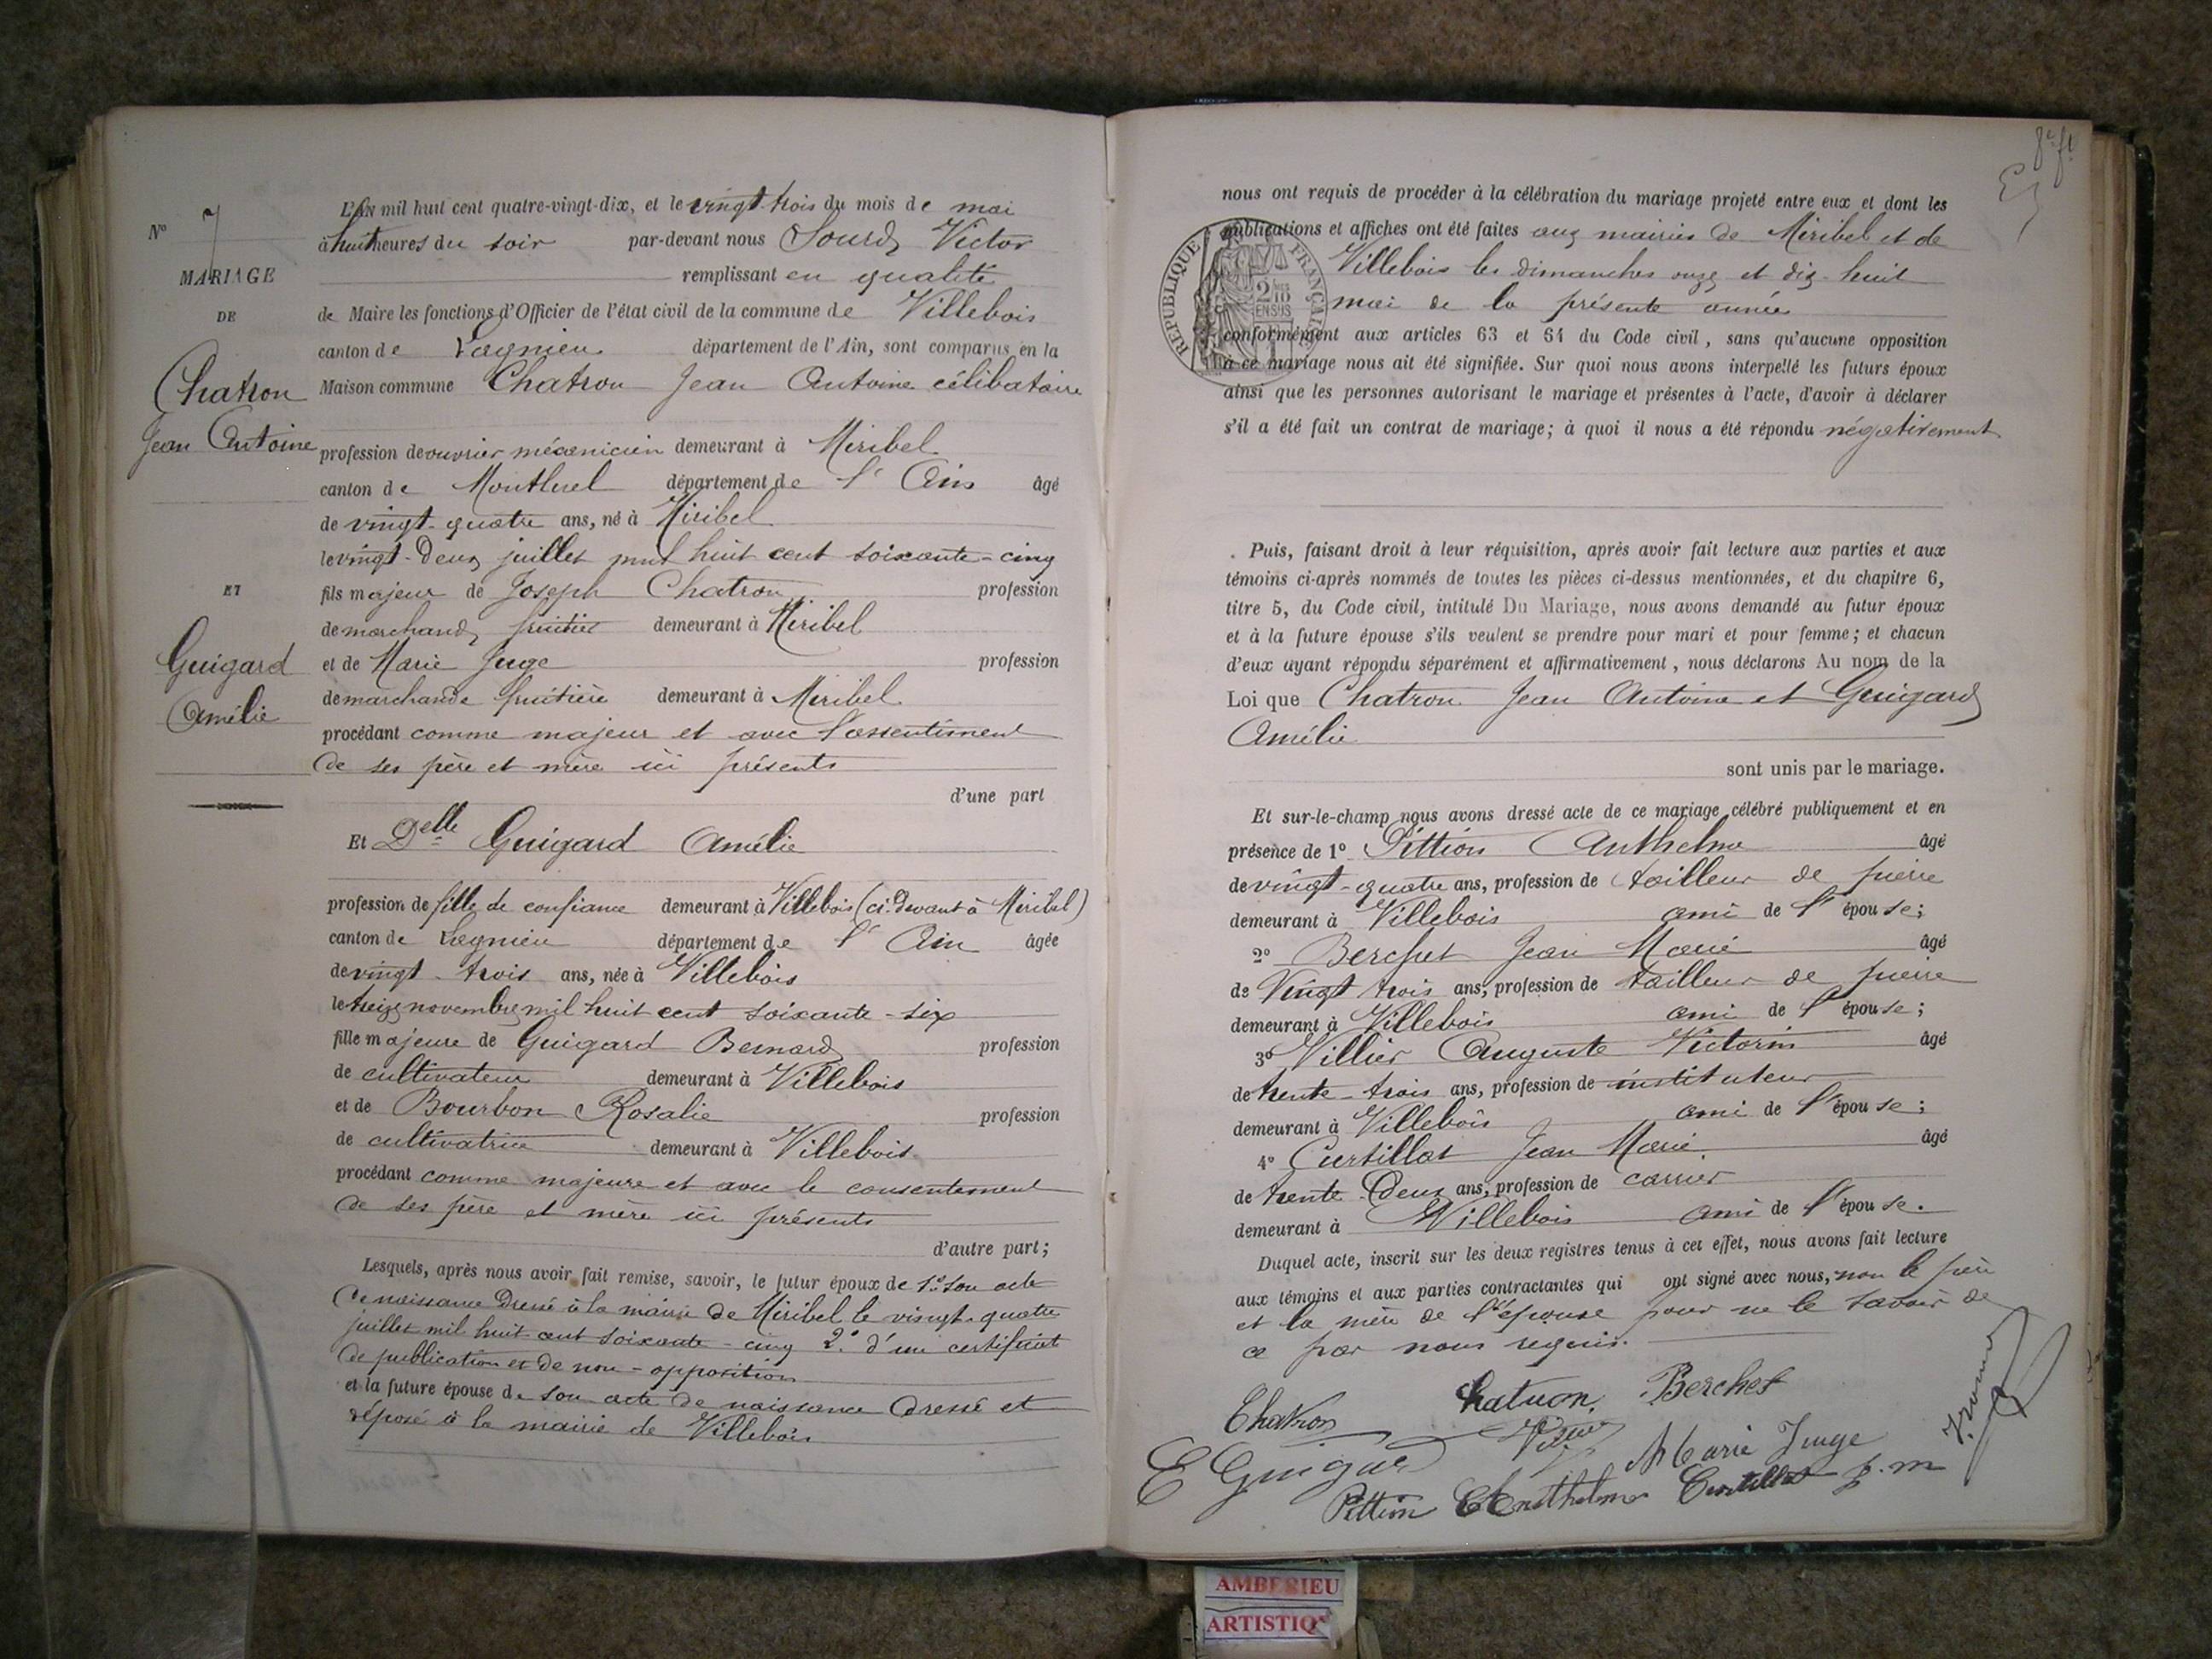 N° 7
MARIAGE
DE
Chatron
Jean Antoine
ET
Guigard
Amélie
L'AN mil huit cent quatre-vingt-dix, et le vingt-trois du mois de mai
à huit heures du soir par-devant nous Sourd Victor
remplissant en qualité
de Maire les fonctions d'Officier de l'état civil de la commune de Villebois
canton de Lagnieu département de l'Ain, sont comparus en la
Maison commune Chatron Jean Antoine célibataire
profession de ouvrier mécanicien demeurant à Miribel
canton de Montluel département de l'Ain âgé
de vingt-quatre ans, né à Miribel
le vingt-deux juillet mil huit cent soixante-cinq
fils majeur de Joseph Chatron profession
de marchand fruitier demeurant à Miribel
et de Marie Juge profession
de marchande fruitière demeurant à Miribel
procédant comme majeur et avec l'assentiment
de ses père et mère ici présents
d'une part
Et Delle Guigard Amélie
profession de fille de confiance demeurant à Villebois (ci-devant à Miribel)
canton de Lagnieu département de l'Ain âgée
de vingt-trois ans, née à Villebois
le treize novembre mil huit cent soixante-six
fille majeure de Guigard Bernard profession
de cultivateur demeurant à Villebois
et de Bourbon Rosalie profession
de cultivatrice demeurant à Villebois
procédant comme majeure et avec le consentement
de ses père et mère ici présents
d'autre part;
Lesquels, après nous avoir fait remise, savoir, le futur époux de 1° son acte
de naissance dressé à la mairie de Miribel le vingt-quatre
juillet mil huit cent soixante-cinq 2° d'un certificat
de publication et de non-opposition
et la future épouse de son acte de naissance dressé et
déposé à la mairie de Villebois
8e ft
nous ont requis de procéder à la célébration du mariage projeté entre eux et dont les
publications et affiches ont été faites aux mairies de Miribel et de
Villebois les dimanches onze et dix-huit
mai de la présente année
RÉPUBLIQUE FRANÇAISE
2/10 EN SUS
conformément aux articles 63 et 64 du Code civil, sans qu'aucune opposition
à ce mariage nous ait été signifiée. Sur quoi nous avons interpellé les futurs époux
ainsi que les personnes autorisant le mariage et présentes à l'acte, d'avoir à déclarer
s'il a été fait un contrat de mariage; à quoi il nous a été répondu négativement
Puis, faisant droit à leur réquisition, après avoir fait lecture aux parties et aux
témoins ci-après nommés de toutes les pièces ci-dessus mentionnées, et du chapitre 6,
titre 5, du Code civil, intitulé Du Mariage, nous avons demandé au futur époux
et à la future épouse s'ils veulent se prendre pour mari et pour femme; et chacun
d'eux ayant répondu séparément et affirmativement, nous déclarons Au nom de la
Loi que Chatron Jean Antoine et Guigard
Amélie
sont unis par le mariage.
Et sur-le-champ nous avons dressé acte de ce mariage célébré publiquement et en
présence de 1° Pittion Anthelme âgé
de vingt-quatre ans, profession de tailleur de pierre
demeurant à Villebois ami de l'épouse;
2° Berchet Jean Marie âgé
de Vingt trois ans, profession de tailleur de pierre
demeurant à Villebois ami de l'épouse;
3° Villier Auguste Victorin âgé
de trente-trois ans, profession de instituteur
demeurant à Villebois ami de l'épouse;
4° Curtillat Jean Marie âgé
de trente-deux ans, profession de carrier
demeurant à Villebois ami de l'épouse.
Duquel acte, inscrit sur les deux registres tenus à cet effet, nous avons fait lecture
aux témoins et aux parties contractantes qui ont signé avec nous, non le père
et la mère de l'épouse pour ne le savoir de
ce par nous requis.
Chatron Chatron. Berchet
E Guigard Marie Juge
Pittion Anthelme Curtillat j. m
AMBERIEU
ARTISTIQ